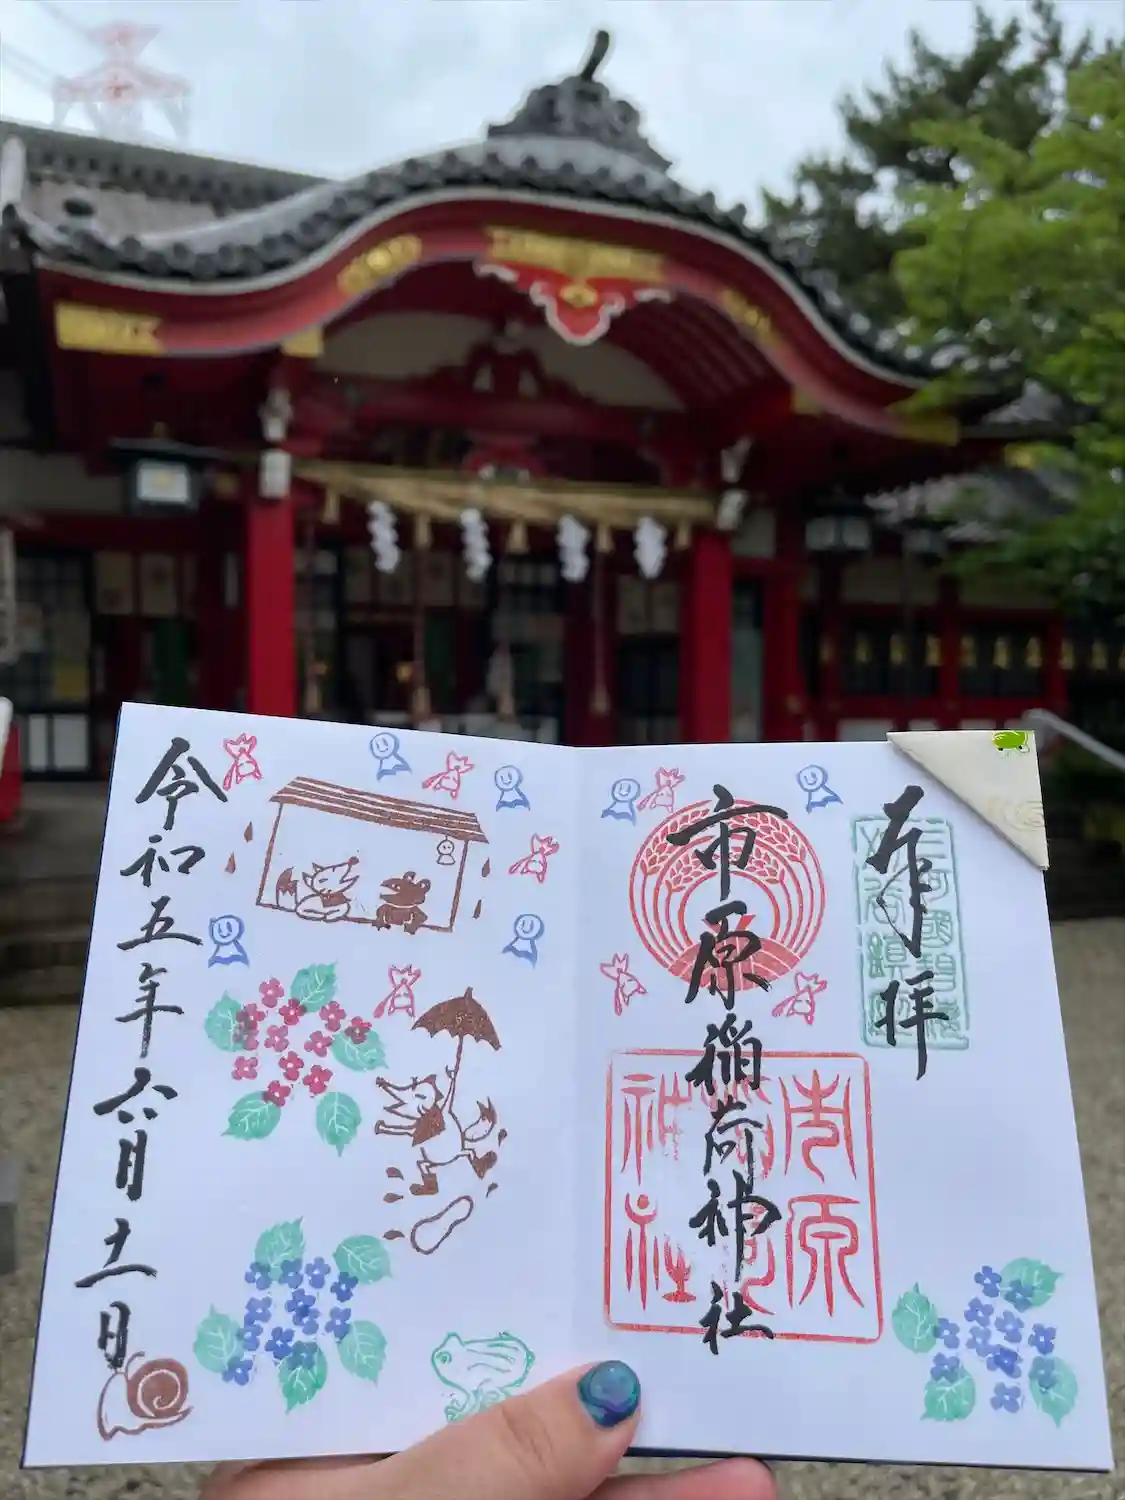 奉拝
市原稲荷神社
市原
神社
令和五年六月十一日